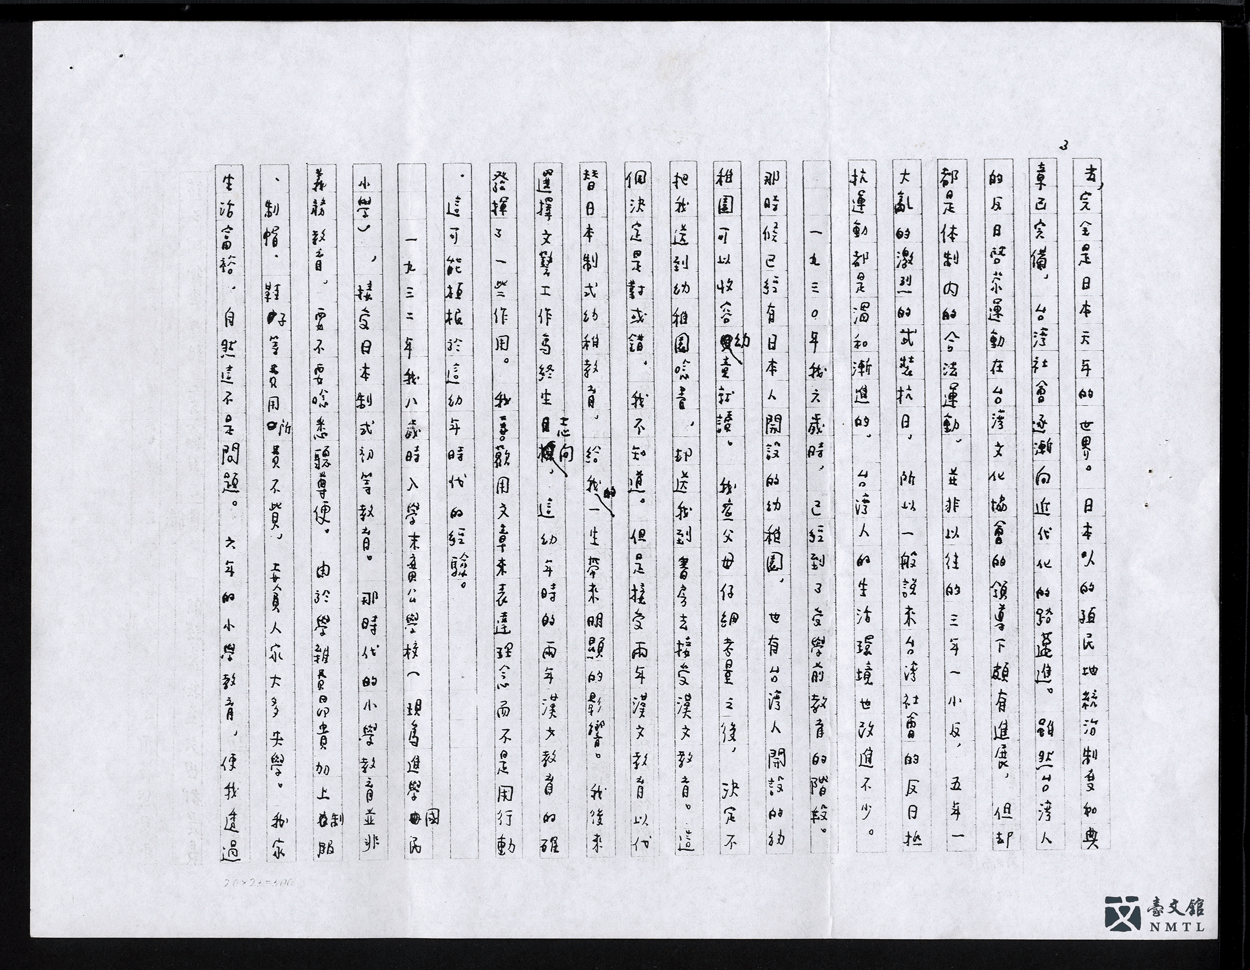 3
去,完全是日本六年的世界。日本人的殖民地統治制度和典
章已完備,台灣社會逐漸向近代化的路邁進。雖然台灣人
的反日啓蒙運動在台灣文化協會的領導下頗有進展,但却
都是体制内的合法運動,並非以往的三年一小反,五年一
大亂的激烈的武裝抗日,所以一般說來台灣社會的反日抵
抗運動都是溫和漸進的,台灣人的生活環境也改進不少。
一九三〇年我六歲時,已經到了受學前教育的階段。
那時候已經有日本人開設的幼稚園,也有台灣人開設的幼
稚園可以收容幼童就讀。我家父母仔細考量之後,決定不
把我送到幼稚園唸書,却送我到書房去接受漢文教育。這
個決定是對或錯,我不知道。但是接受兩年漢文教育以代
替日本制式幼稚教育,給我的一生帶來明顯的影響。我後來
選擇文學工作爲終生志向,這幼年時的兩年漢文教育的確
發揮了一些作用。我喜歡用文章來表達理念而不是用行動
。這可能植根於這幼年時代的經驗。
一九三二年我八歲時入學末廣公學校(現爲進學國民
小學),接受日本制式初等教育。那時代的小學教育並非
義務教育,要不要唸悉聽尊便。由於學雜費昂貴加上制服
、制帽、鞋子等費用所費不貲,貧人家大多失學。我家
生活富裕,自然這不是問題。六年的小學教育,使我透過
20×25=500
臺文館
NMTL